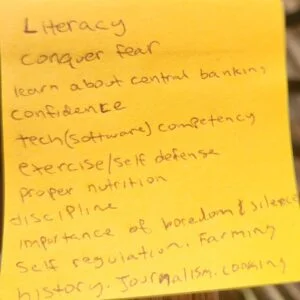 Literacy
conquer fear
learn about central banking
confidence
tech(software) competency
exercise/self defense
proper nutrition
discipline
importance of boredom & silence
self regulation. Farming
history. Journalism. cooking